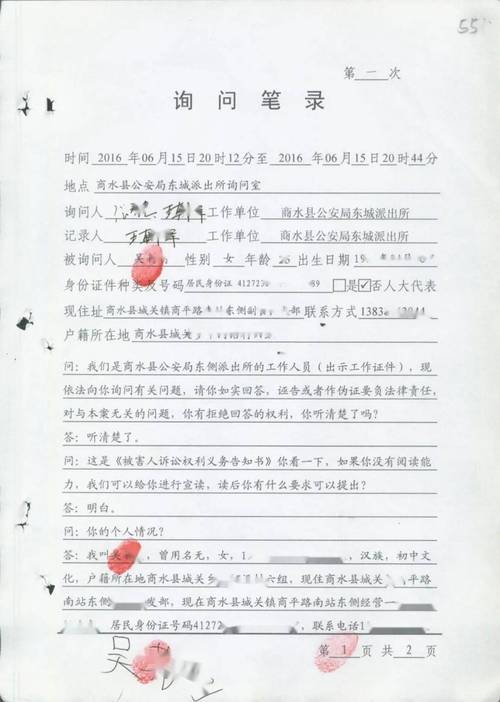 55
第 一 次
询问笔录
时间 2016 年 06 月 15 日 20 时 12 分至 2016 年 06 月 15 日 20 时 44 分
地点 商水县公安局东城派出所询问室
询问人 工作单位 商水县公安局东城派出所
记录人 工作单位 商水县公安局东城派出所
被询问人 吴 性别 女 年龄 出生日期 19
身份证件种类及号码 居民身份证 4127230 89 □是☑否人大代表
现住址 商水县城关镇商平路 东侧 部 联系方式 1383
户籍所在地 商水县城关
问：我们是商水县公安局东侧派出所的工作人员（出示工作证件），现
依法向你询问有关问题，请你如实回答，诬告或者作伪证要负法律责任，
对与本案无关的问题，你有拒绝回答的权利，你听清楚了吗？
答：听清楚了。
问：这是《被害人诉讼权利义务告知书》你看一下，如果你没有阅读能
力，我们可以给你进行宣读，读后你有什么要求可以提出？
答：明白。
问：你的个人情况？
答：我叫吴 ，曾用名无，女，1 ，汉族，初中文
化，户籍所在地商水县城关乡 六组，现住商水县城关 平路
南站东侧 发部，现在商水县城关镇商平路南站东侧经营一
居民身份证号码41272 ，联系电话1
吴
第 1 页 共 2 页